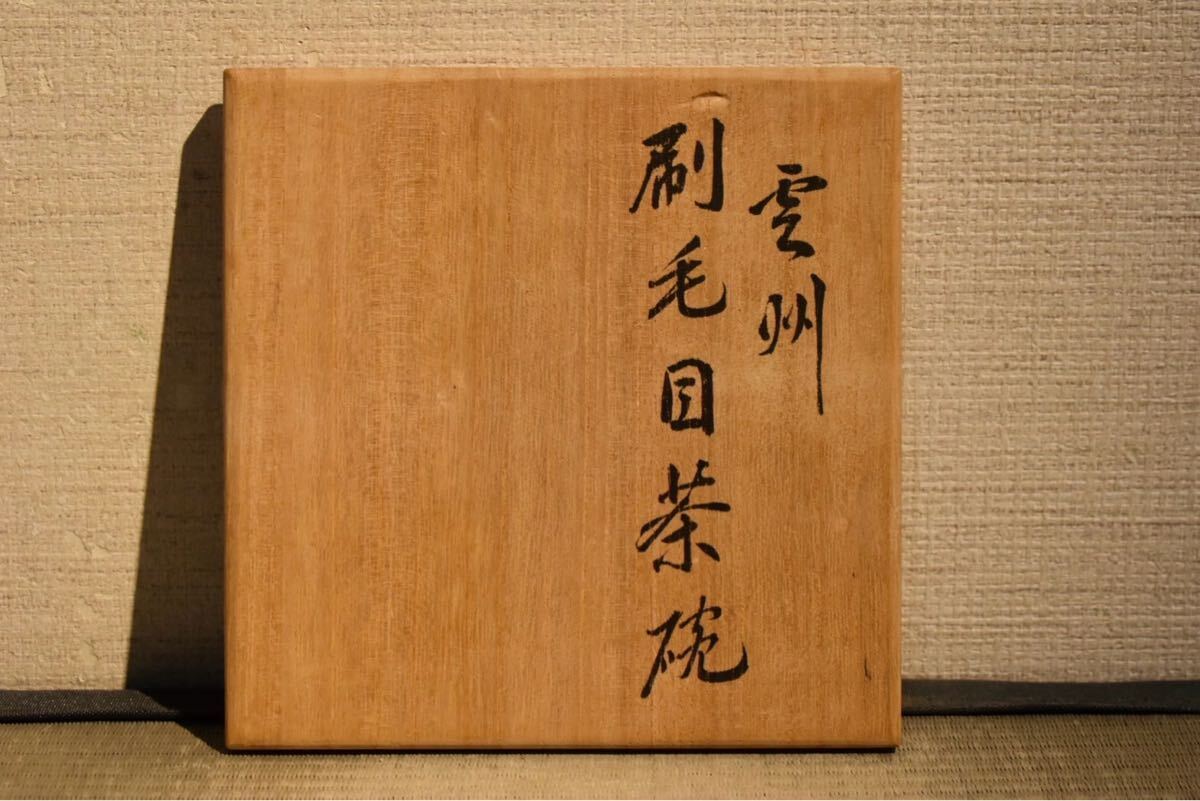 雲州
刷毛目茶碗